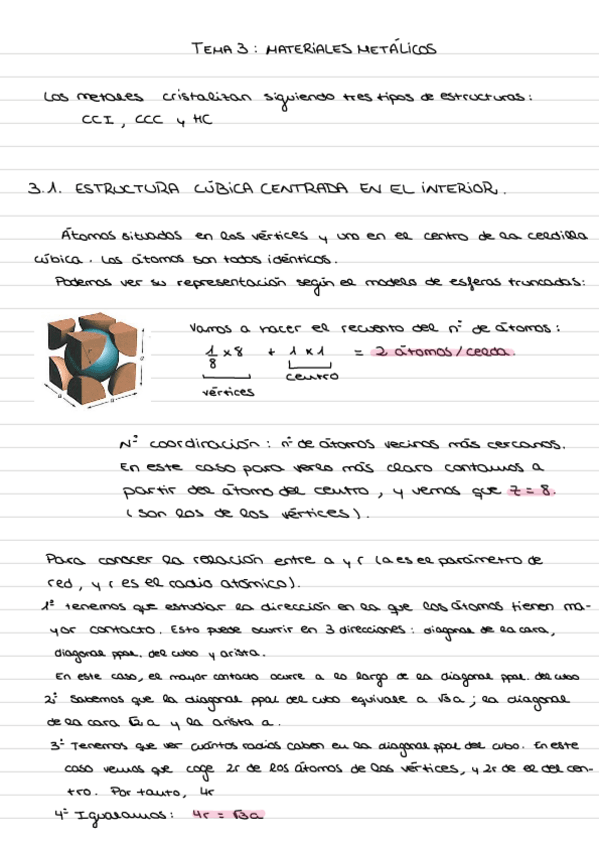 TEMA 3: MATERIALES METÁLICOS
Los metales cristalizan siguiendo tres tipos de estructuras:
CCI, CCC y HC
3.1. ESTRUCTURA CÚBICA CENTRADA EN EL INTERIOR.
Átomos situados en los vértices y uno en el centro de la celdilla
cúbica. Los átomos son todos idénticos.
Podemos ver su representación según el modelo de esferas truncadas:
Vamos a hacer el recuento del nº de átomos:
1/8 x 8 + 1 x 1 = 2 átomos/celda.
centro
vértices
a
r
a
a
Nº coordinación: nº de átomos vecinos más cercanos.
En este caso para verlo más claro contamos a
partir del átomo del centro, y vemos que z = 8.
(son los de los vértices).
Para conocer la relación entre a y r (a es el parámetro de
red, y r es el radio atómico).
1º tenemos que estudiar la dirección en la que los átomos tienen ma-
yor contacto. Esto puede ocurrir en 3 direcciones: diagonal de la cara,
diagonal ppal. del cubo y arista.
En este caso, el mayor contacto ocurre a lo largo de la diagonal ppal. del cubo
2º Sabemos que la diagonal ppal del cubo equivale a √3a; la diagonal
de la cara √2a y la arista a.
3º Tenemos que ver cuántos radios caben en la diagonal ppal del cubo. En este
caso vemos que coge 2r de los átomos de los vértices, y 2r de el del cen-
tro. Por tanto, 4r
4º Igualamos: 4r = √3a